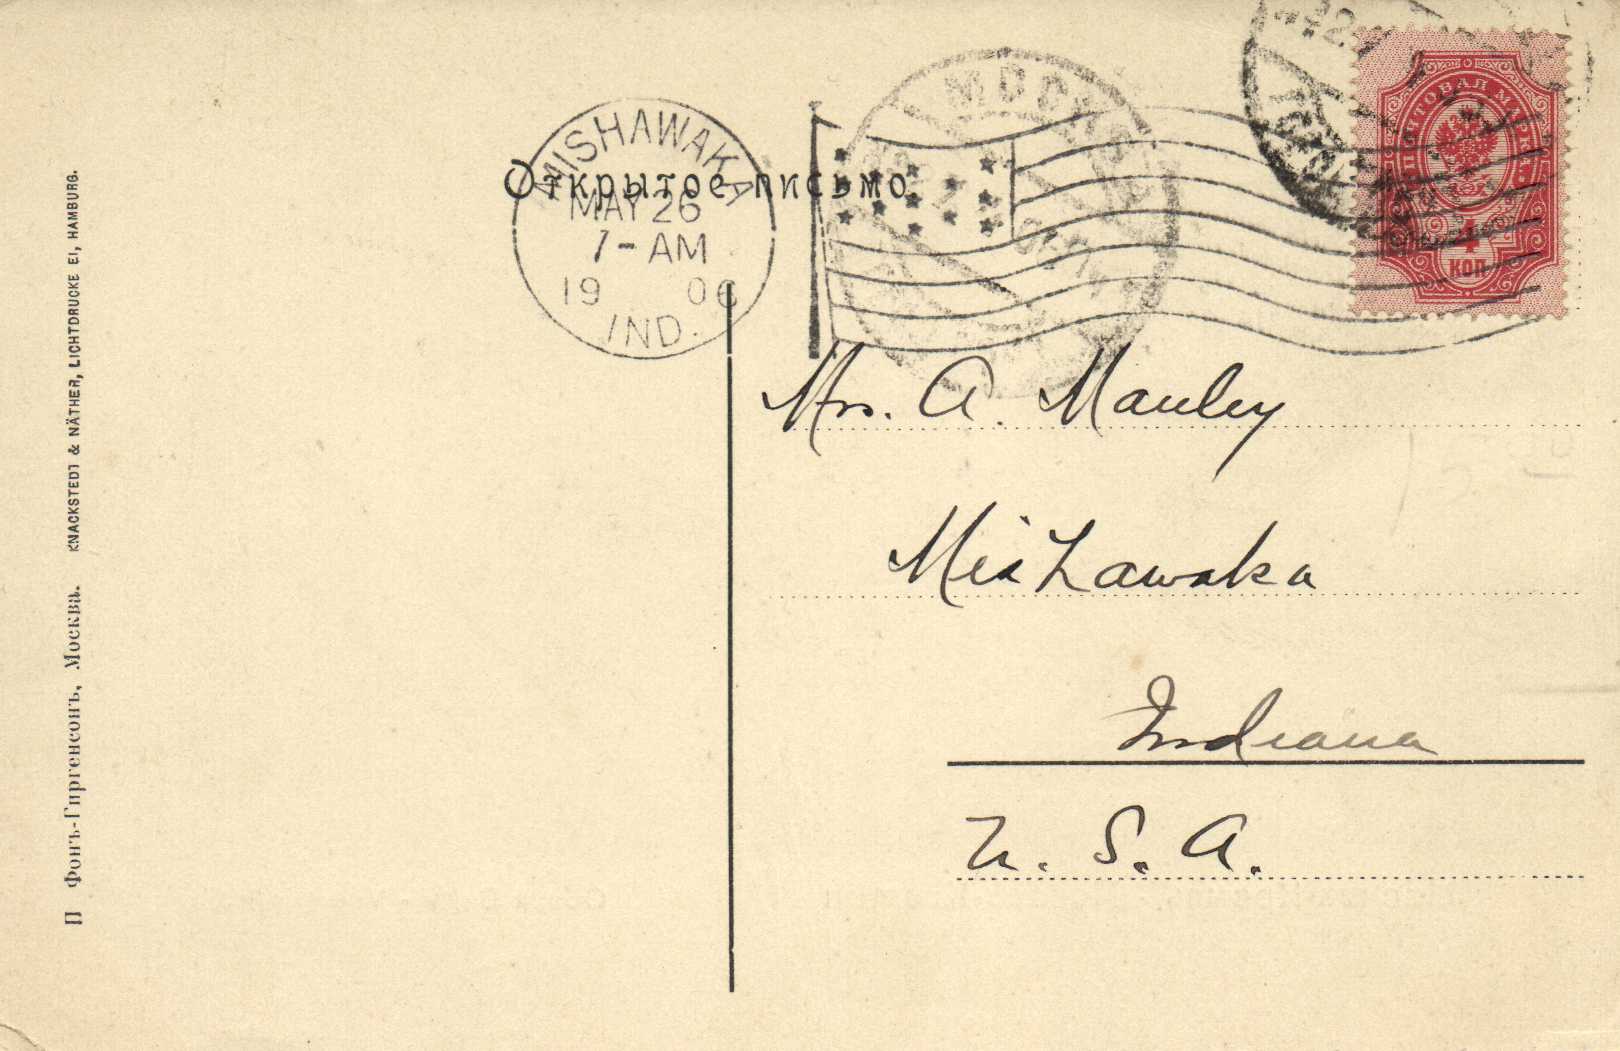 Открытое письмо
MISHAWAKA
MAY 26
7-AM
1906
IND.
МОСКВА
ПОЧТОВАЯ МАРКА.
4
КОП
Mrs. A. Manley
Mishawaka
Indiana
U. S. A.
П Фонъ-Гиргенсонъ, Москва. KNACKSTEDT & NÄTHER, LICHTDRUCKE EI, HAMBURG.